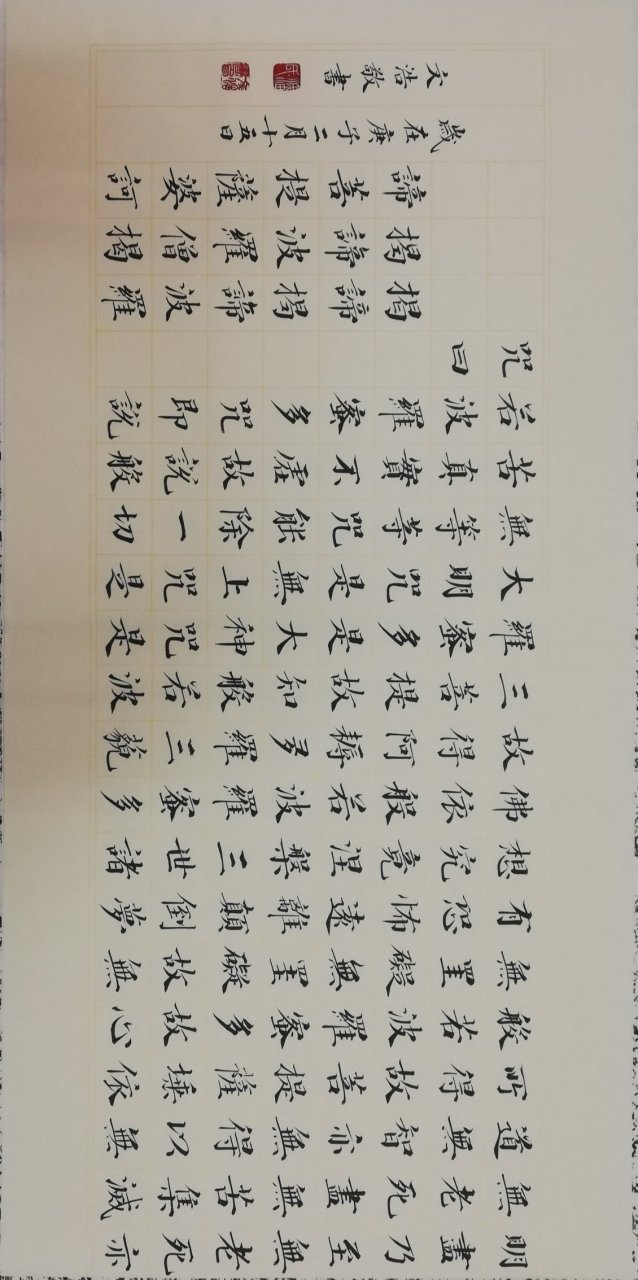 明盡乃至無老死亦
無老死盡無苦集滅
道無智亦無得以無
所得故菩提薩埵依
般若波羅蜜多故心
無罣礙無罣礙故無
有恐怖遠離顛倒夢
想究竟涅槃三世諸
佛依般若波羅蜜多
故得阿耨多羅三藐
三菩提故知般若波
羅蜜多是大神咒是
大明咒是無上咒是
無等等咒能除一切
苦真實不虛故說般
若波羅蜜多咒即說
咒曰
揭諦揭諦波羅
揭諦波羅僧揭
諦菩提薩婆訶
歲在庚子二月十五日
文浩敬書